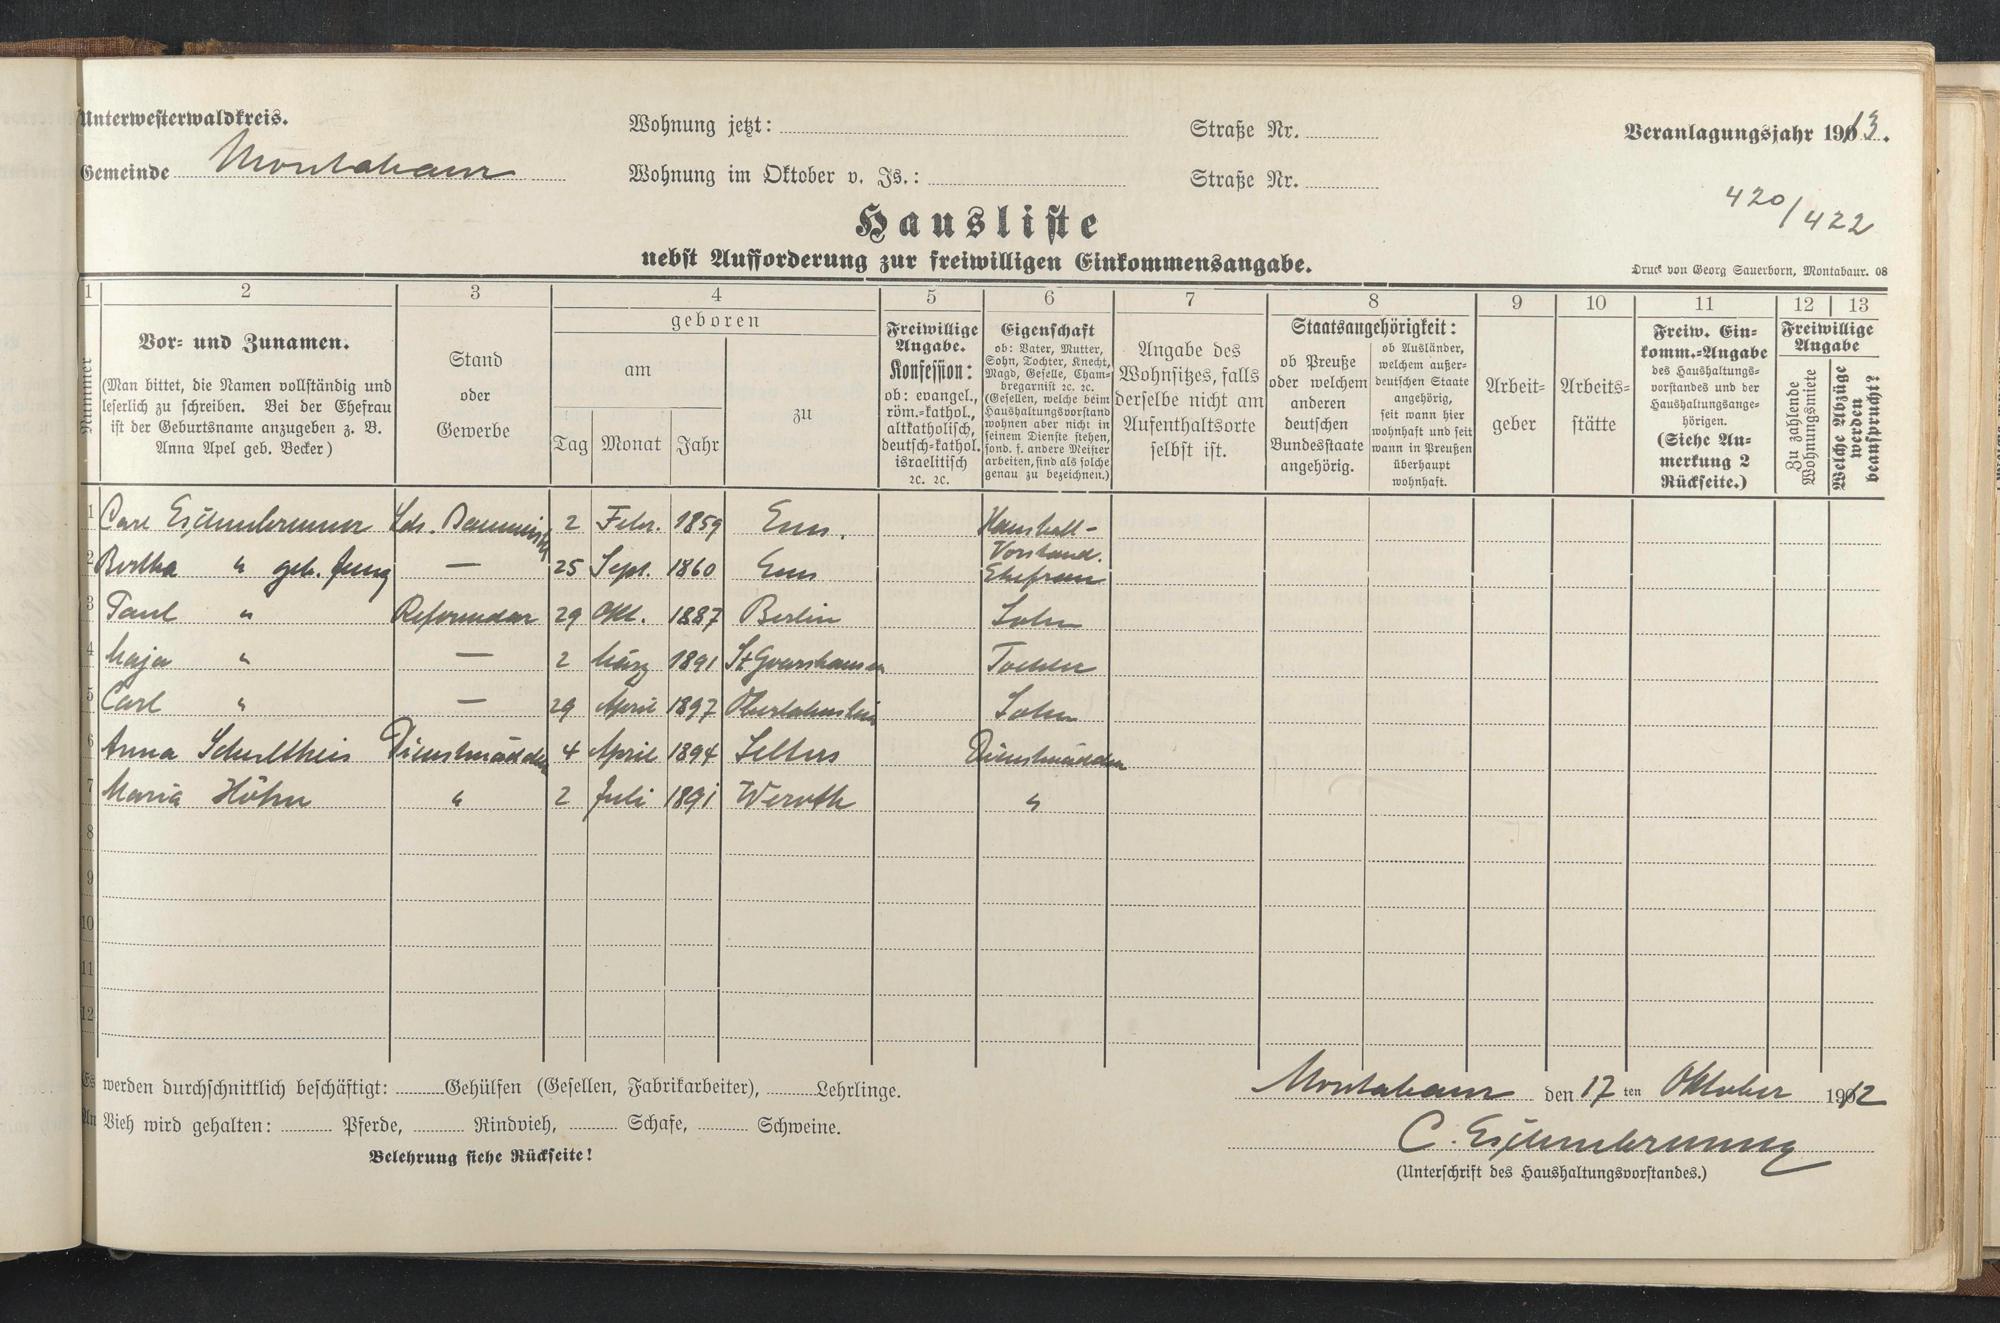 Unterwesterwaldkreis.
Gemeinde Montabaur
Wohnung jetzt: Straße Nr.
Wohnung im Oktober v. Js.: Straße Nr.
Veranlagungsjahr 1913.
420/422
Hausliste
nebst Aufforderung zur freiwilligen Einkommensangabe.
Druck von Georg Sauerborn, Montabaur. 08
1 2 3 4 5 6 7 8 9 10 11 12 13
Nummer
Vor- und Zunamen.
(Man bittet, die Namen vollständig und
leserlich zu schreiben. Bei der Ehefrau
ist der Geburtsname anzugeben z. B.
Anna Apel geb. Becker)
Stand
oder
Gewerbe
geboren
am
Tag Monat Jahr
zu
Freiwillige
Angabe.
Konfession:
ob: evangel.,
röm.-kathol.,
altkatholisch,
deutsch-kathol.
israelitisch
ꝛc. ꝛc.
Eigenschaft
ob: Vater, Mutter,
Sohn, Tochter, Knecht,
Magd, Geselle, Cham-
bregarnist ꝛc. ꝛc.
(Gesellen, welche beim
Haushaltungsvorstand
wohnen aber nicht in
seinem Dienste stehen,
sond. f. andere Meister
arbeiten, sind als solche
genau zu bezeichnen.)
Angabe des
Wohnsitzes, falls
derselbe nicht am
Aufenthaltsorte
selbst ist.
Staatsangehörigkeit:
ob Preuße
oder welchem
anderen
deutschen
Bundesstaate
angehörig.
ob Ausländer,
welchem außer-
deutschen Staate
angehörig,
seit wann hier
wohnhaft und seit
wann in Preußen
überhaupt
wohnhaft.
Arbeit-
geber
Arbeits-
stätte
Freiw. Ein-
komm.-Angabe
des Haushaltungs-
vorstandes und der
Haushaltungsange-
hörigen.
(Siehe An-
merkung 2
Rückseite.)
Freiwillige
Angabe
Zu zahlende
Wohnungsmiete
Welche Abzüge
werden
beansprucht?
1 Carl Eschenbrenner 2 Febr. 1859 Ems. Haushalt-
Vorstand.
2 Bertha " geb. Jung — 25 Sept. 1860 Ems Ehefrau
3 Paul " Referendar 29 Okt. 1887 Berlin Sohn
4 Maja " — 2 März 1891 St Goarshausen Tochter
5 Carl " — 29 April 1897 Oberlahnstein Sohn
6 Anna Schultheis Dienstmädchen 4 April 1894 Selters Dienstmädchen
7 Maria Höhn " 2 Juli 1891 Weroth "
8
9
10
11
12
Es werden durchschnittlich beschäftigt: Gehülfen (Gesellen, Fabrikarbeiter), Lehrlinge.
An Vieh wird gehalten: Pferde, Rindvieh, Schafe, Schweine.
Belehrung siehe Rückseite!
Montabaur den 17 ten Oktober 1912
C. Eschenbrenner
(Unterschrift des Haushaltungsvorstandes.)